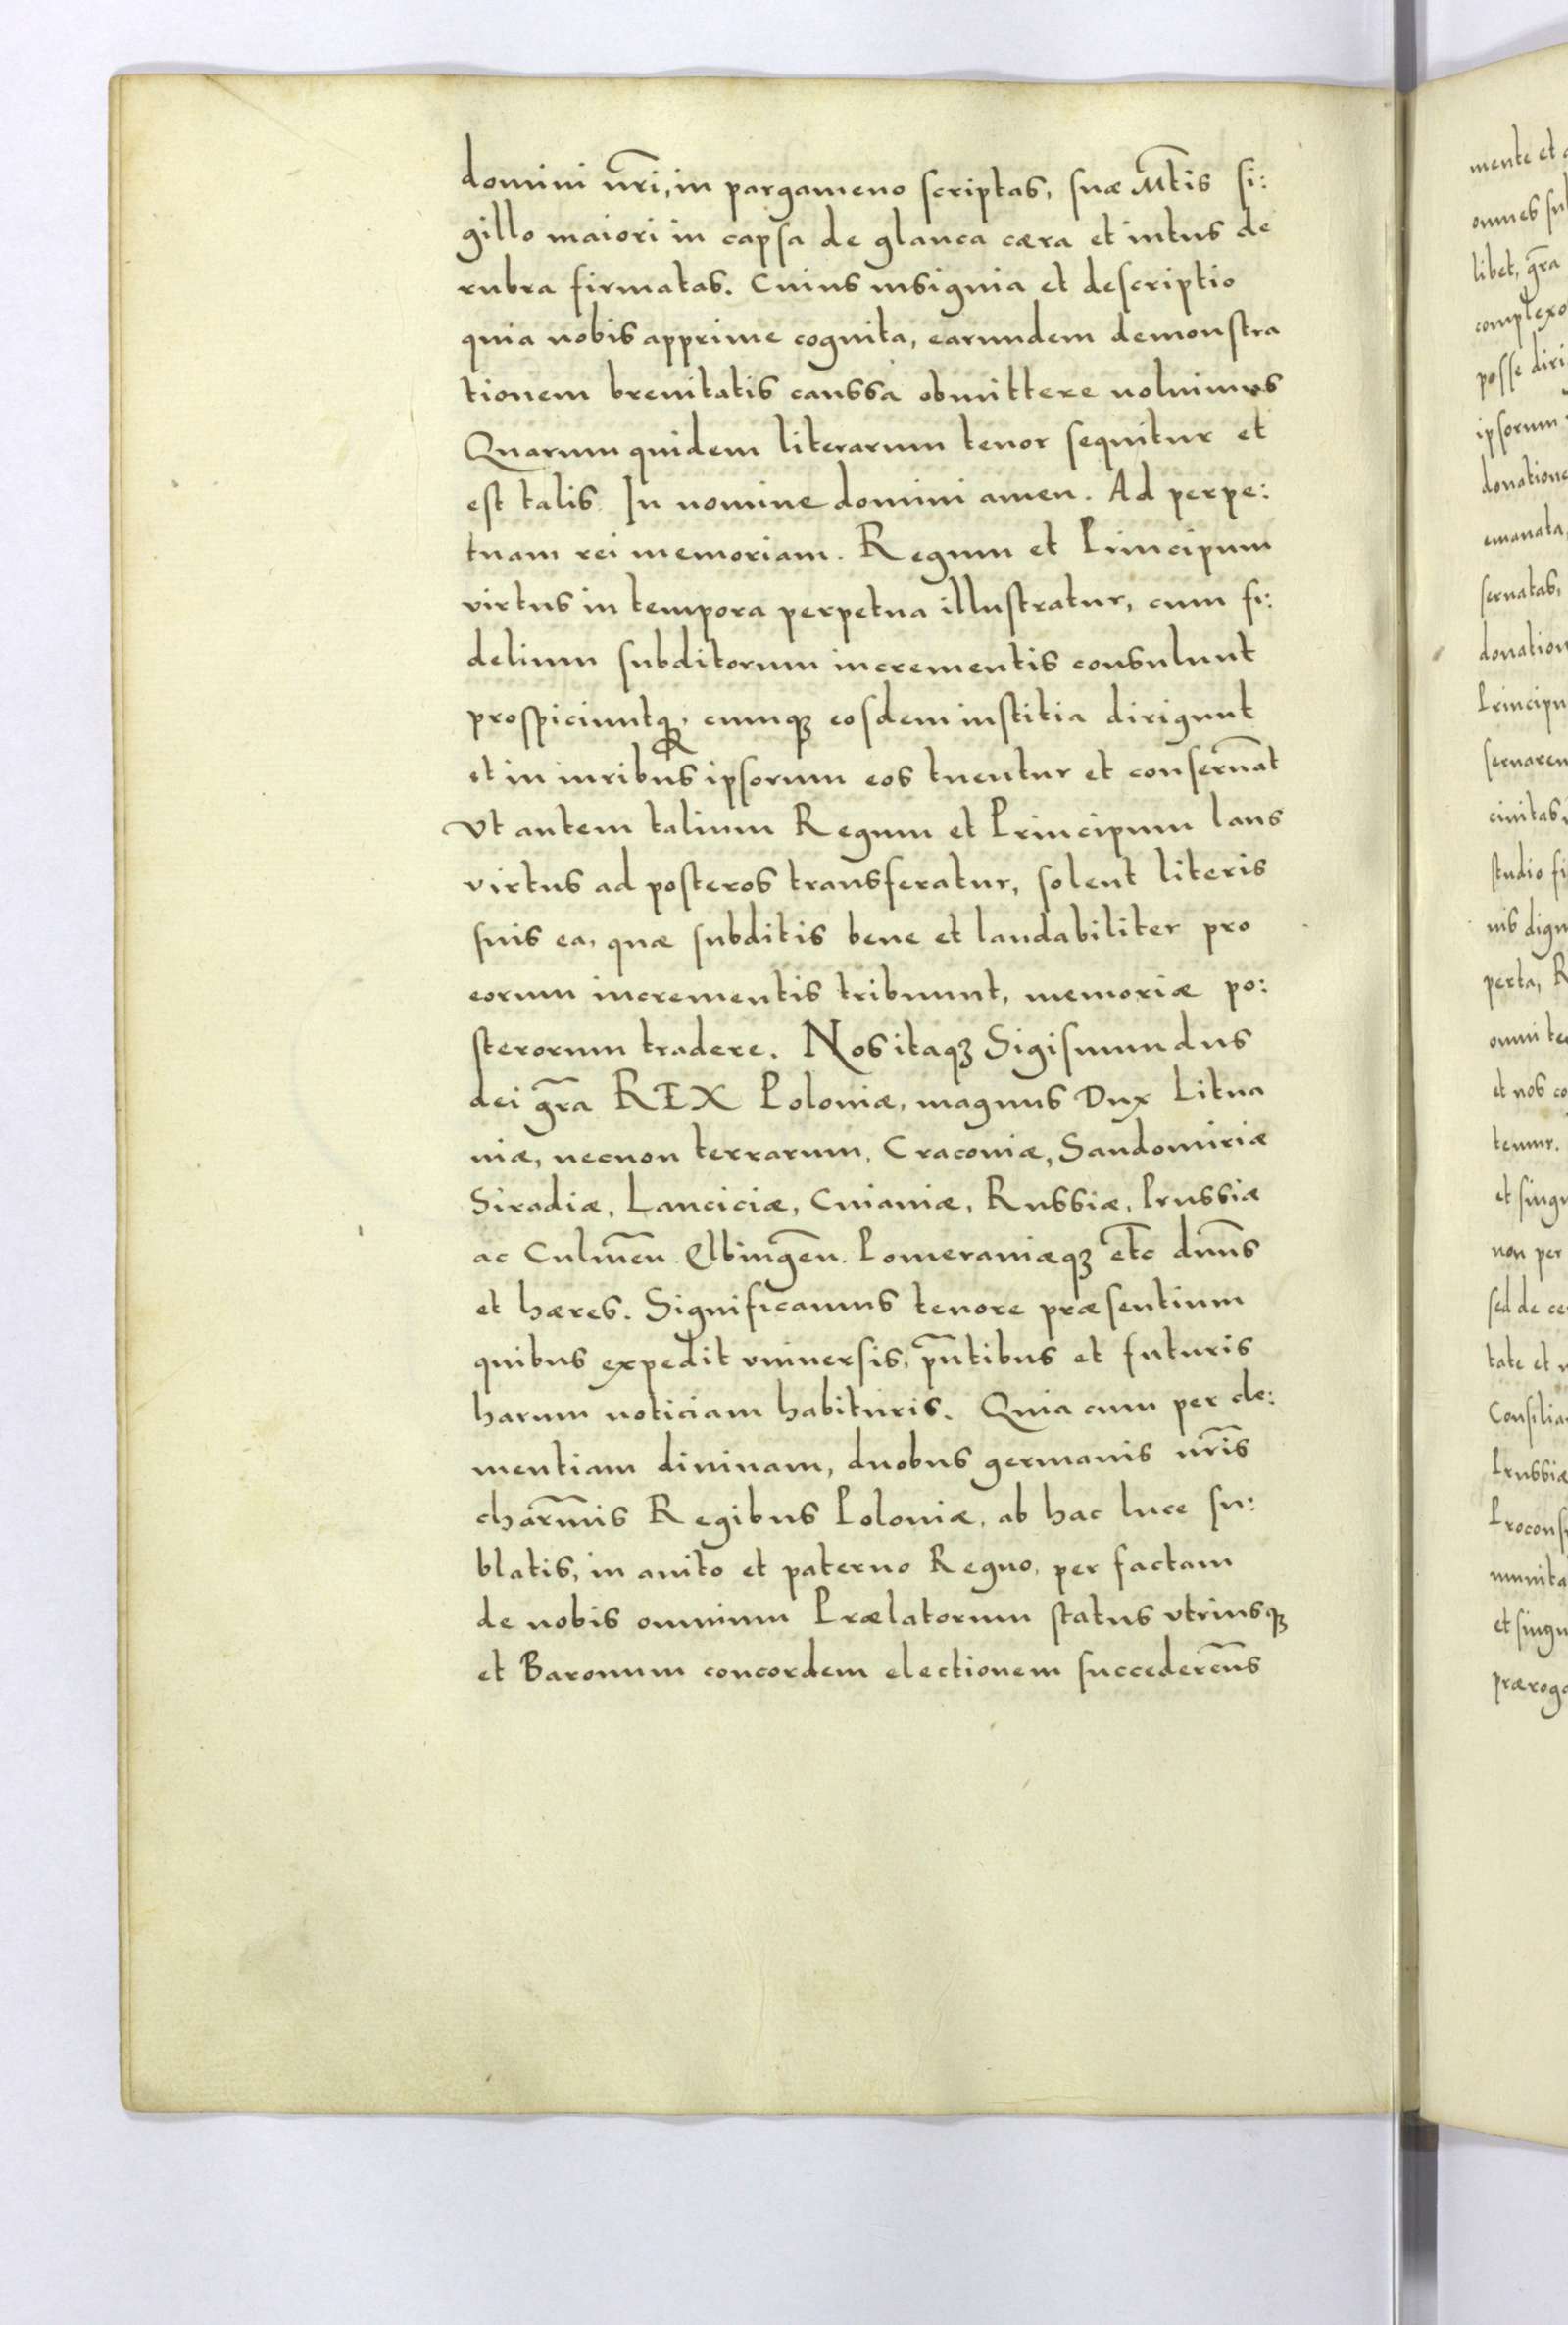 domini nr̃i, in pargameno scriptas, suæ Mt̃is si:
gillo maiori in capsa de glauca cæra et intus de
rubra firmatas. Cuius insignia et descriptio
quia nobis apprime cognita, earundem demonstra
tionem breuitatis caussa obmittere uoluimus
Quarum quidem literarum tenor sequitur et
est talis. In nomine domini amen. Ad perpe:
tuam rei memoriam. Regum et Principum
virtus in tempora perpetua illustratur, cum fi:
delium subditorum incrementis consulunt
prospiciuntqꝫ, cumqꝫ eosdem iustitia dirigunt
et in iuribus ipsorum eos tuentur et conseruãt
Vt autem talium Regum et Principum laus
virtus ad posteros transferatur, solent literis
suis ea, quæ subditis bene et laudabiliter pro
eorum incrementis tribuunt, memoriæ po:
sterorum tradere. Nos itaqꝫ Sigismundus
dei gr̃a REX Poloniæ, magnus Dux Litua
niæ, necnon terrarum, Cracouiæ, Sandomiriæ
Siradiæ, Lanciciæ, Cuiauiæ, Russiæ, Prussiæ
ac Culmeñ. Elbingeñ. Pomeraniæqꝫ et̃c dn̄us
et hæres. Significamus tenore præsentium
quibus expedit vniuersis, pñtibus et futuris
harum noticiam habituris. Quia cum per cle:
mentiam diuinam, duobus germanis nr̃is
char̃mis Regibus Poloniæ, ab hac luce su:
blatis, in auito et paterno Regno, per factam
de nobis omnium Prælatorum status vtriusqꝫ
et Baronum concordem electionem succederem̃s
mente et
omnes
libet, gr̃a
complexo
posse diri
ipsorum
donatione
emanata,
seruatas,
donation
Principu
seruaren
ciuitas
studio fi
nis dign
perta, R
omni te
et nos co
temur.
et singu
non per
sed de ce
tate et
Consilia
Prussiæ
Procons
munita
et singu
præroga